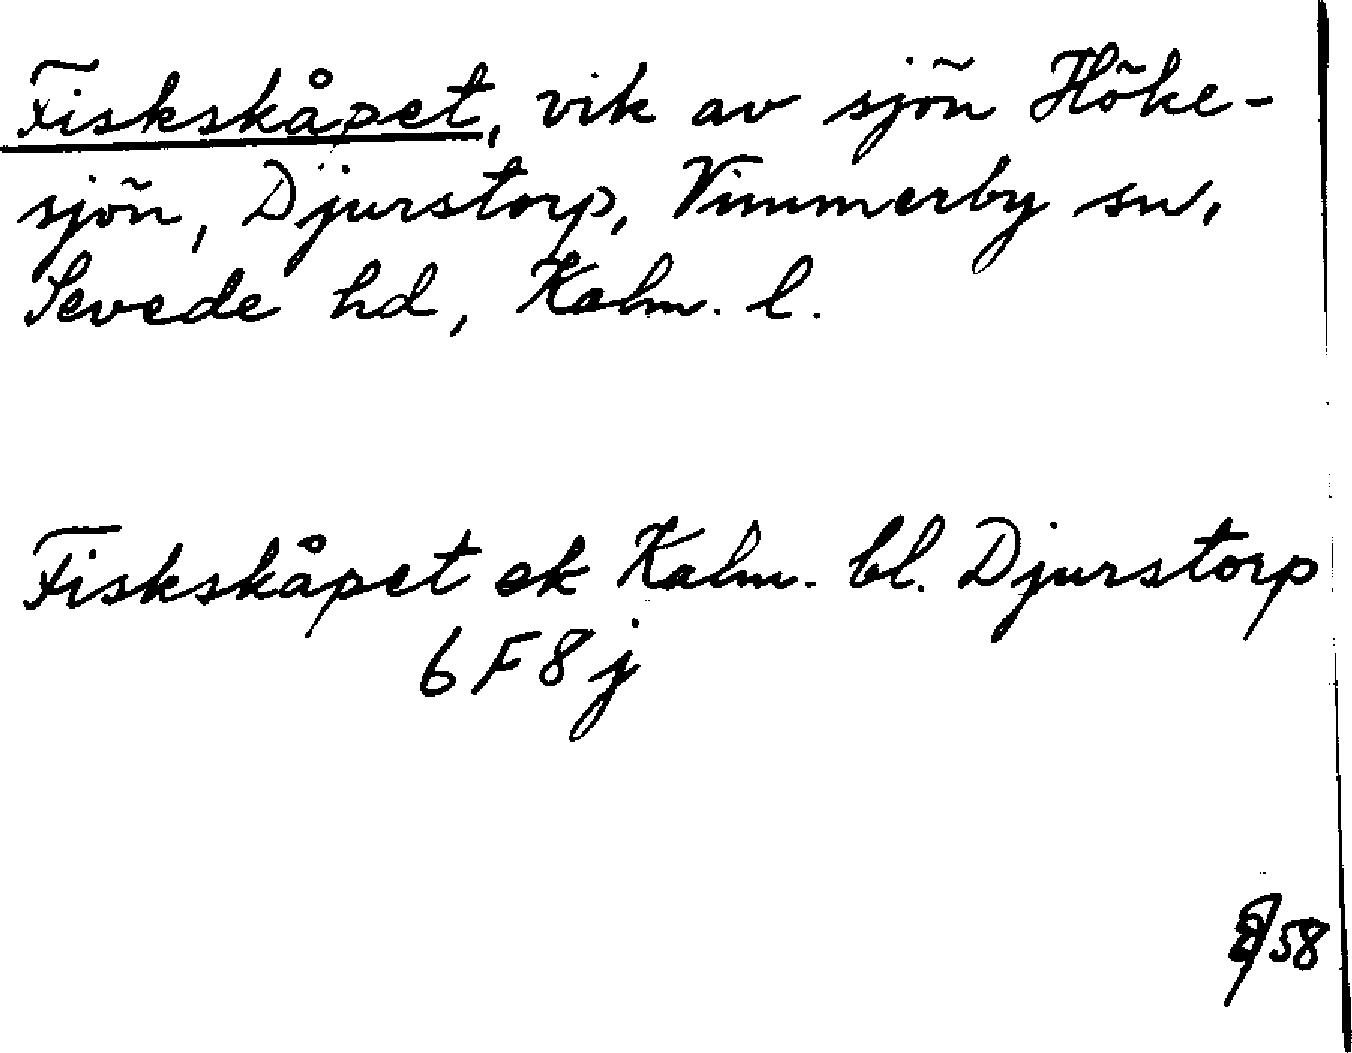 Fiskskåpet, vik av sjön Höke-
sjön, Djurstorp, Vimmerby sn,
Sevede hd, Kalm. l.
Fiskskåpet ek Kalm. bl. Djurstorp
6F8j
58